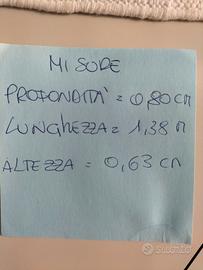 MISURE
PROFONDITÀ = 0,80 cm
LUNGHEZZA = 1,38 m
ALTEZZA = 0,63 cm
subito